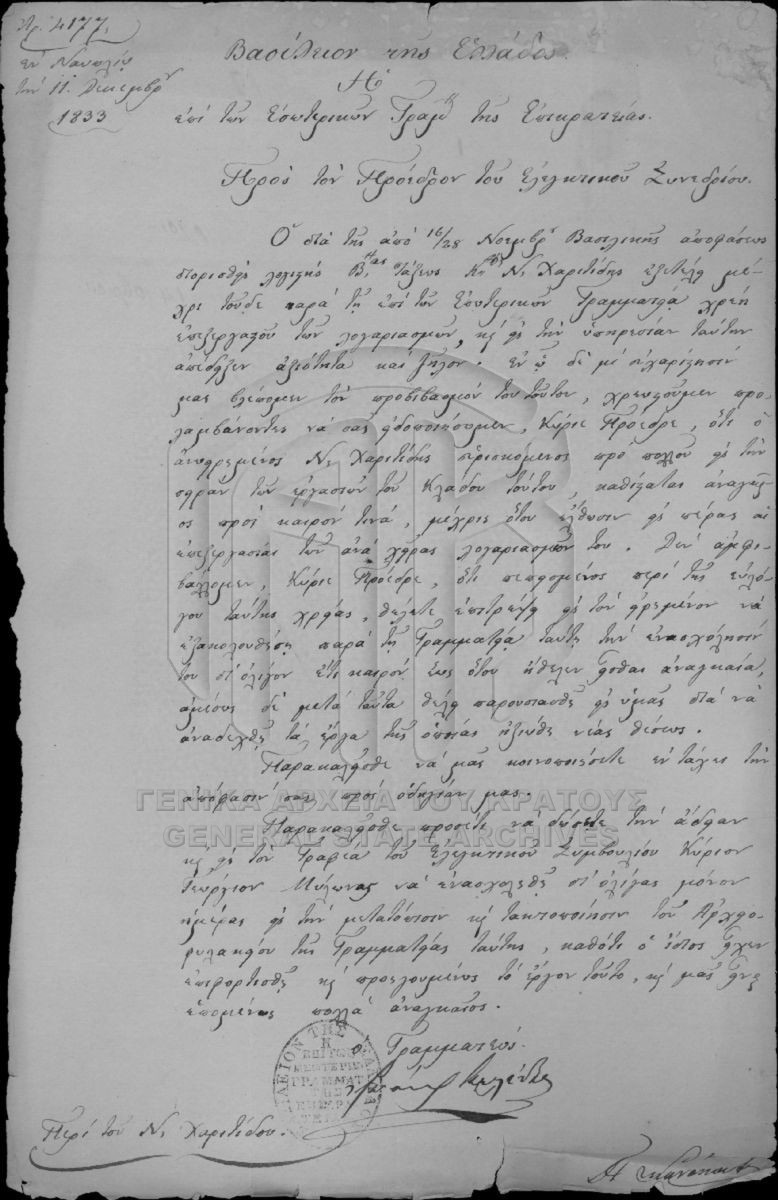 Αρ. 4177.
εν Ναυπλίῳ
την 11. Δεκεμβρ
1833
Βασίλειον της Ελλάδος.
Η
επί των Εσωτερικών Γραμ της Επικρατείας.
Προς τον Πρόεδρον του Ελεγκτικού Συνεδρίου.
Ο διά της από 16/28 Νοεμβρ Βασιλικής αποφάσεως
διορισθείς λογιστής Β τάξεως Κ Ν. Χαριτίδης εξετέλει μέ-
χρι τούδε παρά τη επί των Εσωτερικών Γραμματεία χρέη
επεξεργαστού των λογαριασμών, κ εις την υπηρεσίαν ταύτην
απέδειξεν αξιότητα και ζήλον. εν ῳ δε με ευχαρίστησίν
μας βλέπομεν τον προβιβασμόν του τούτον, χρεωστούμεν προ-
λαμβάνοντες να σας ειδοποιήσωμεν, Κύριε Πρόεδρε, ότι ο
ειρημένος Ν. Χαριτίδης ευρισκόμενος προ πολλού εις την
σειράν των εργασιών του Κλάδου τούτου, καθίσταται αναγκαί-
ος προς καιρόν τινά, μέχρις ότου έλθωσιν εις πέρας αι
επεξεργασίαι των ανά χείρας λογαριασμών του. Δεν αμφι-
βάλλομεν, Κύριε Πρόεδρε, ότι πεπεισμένος περί της ευλό-
γου ταύτης χρείας, θέλετε επιτρέψει εις τον ειρημένον να
εξακολουθήση παρά τη Γραμματεία ταύτη την ενασχόλησίν
του δι' ολίγον έτι καιρόν, έως ότου ήθελεν είσθαι αναγκαία,
αμέσως δε μετά ταύτα θέλει παρουσιασθή εις υμάς διά να
αναδεχθή τα έργα της οποίας ηξιώθη νέας θέσεως.
Παρακαλείσθε να μας κοινοποιήσετε εν τάχει την
απόφασίν σας προς οδηγίαν μας.
Παρακαλείσθε προσέτι να δώσετε την άδειαν
κ εις τον Γραφέα του Ελεγκτικού Συμβουλίου Κύριον
Γεώργιον Μυλωνάν να ενασχοληθή δι' ολίγας μόνον
ημέρας εις την μετατόπισιν κ τακτοποίησιν του Αρχειο-
φυλακείου της Γραμματείας ταύτης, καθότι ο ίδιος είχεν
επιφορτισθή κ προηγουμένως το έργον τούτο, κ μας είναι
επομένως πολλά αναγκαίος.
ο Γραμματεύς.
Κωλέττης
Περί του Ν. Χαριτίδου.
ΓΕΝΙΚΑ ΑΡΧΕΙΑ ΤΟΥ ΚΡΑΤΟΥΣ
GENERAL STATE ARCHIVES